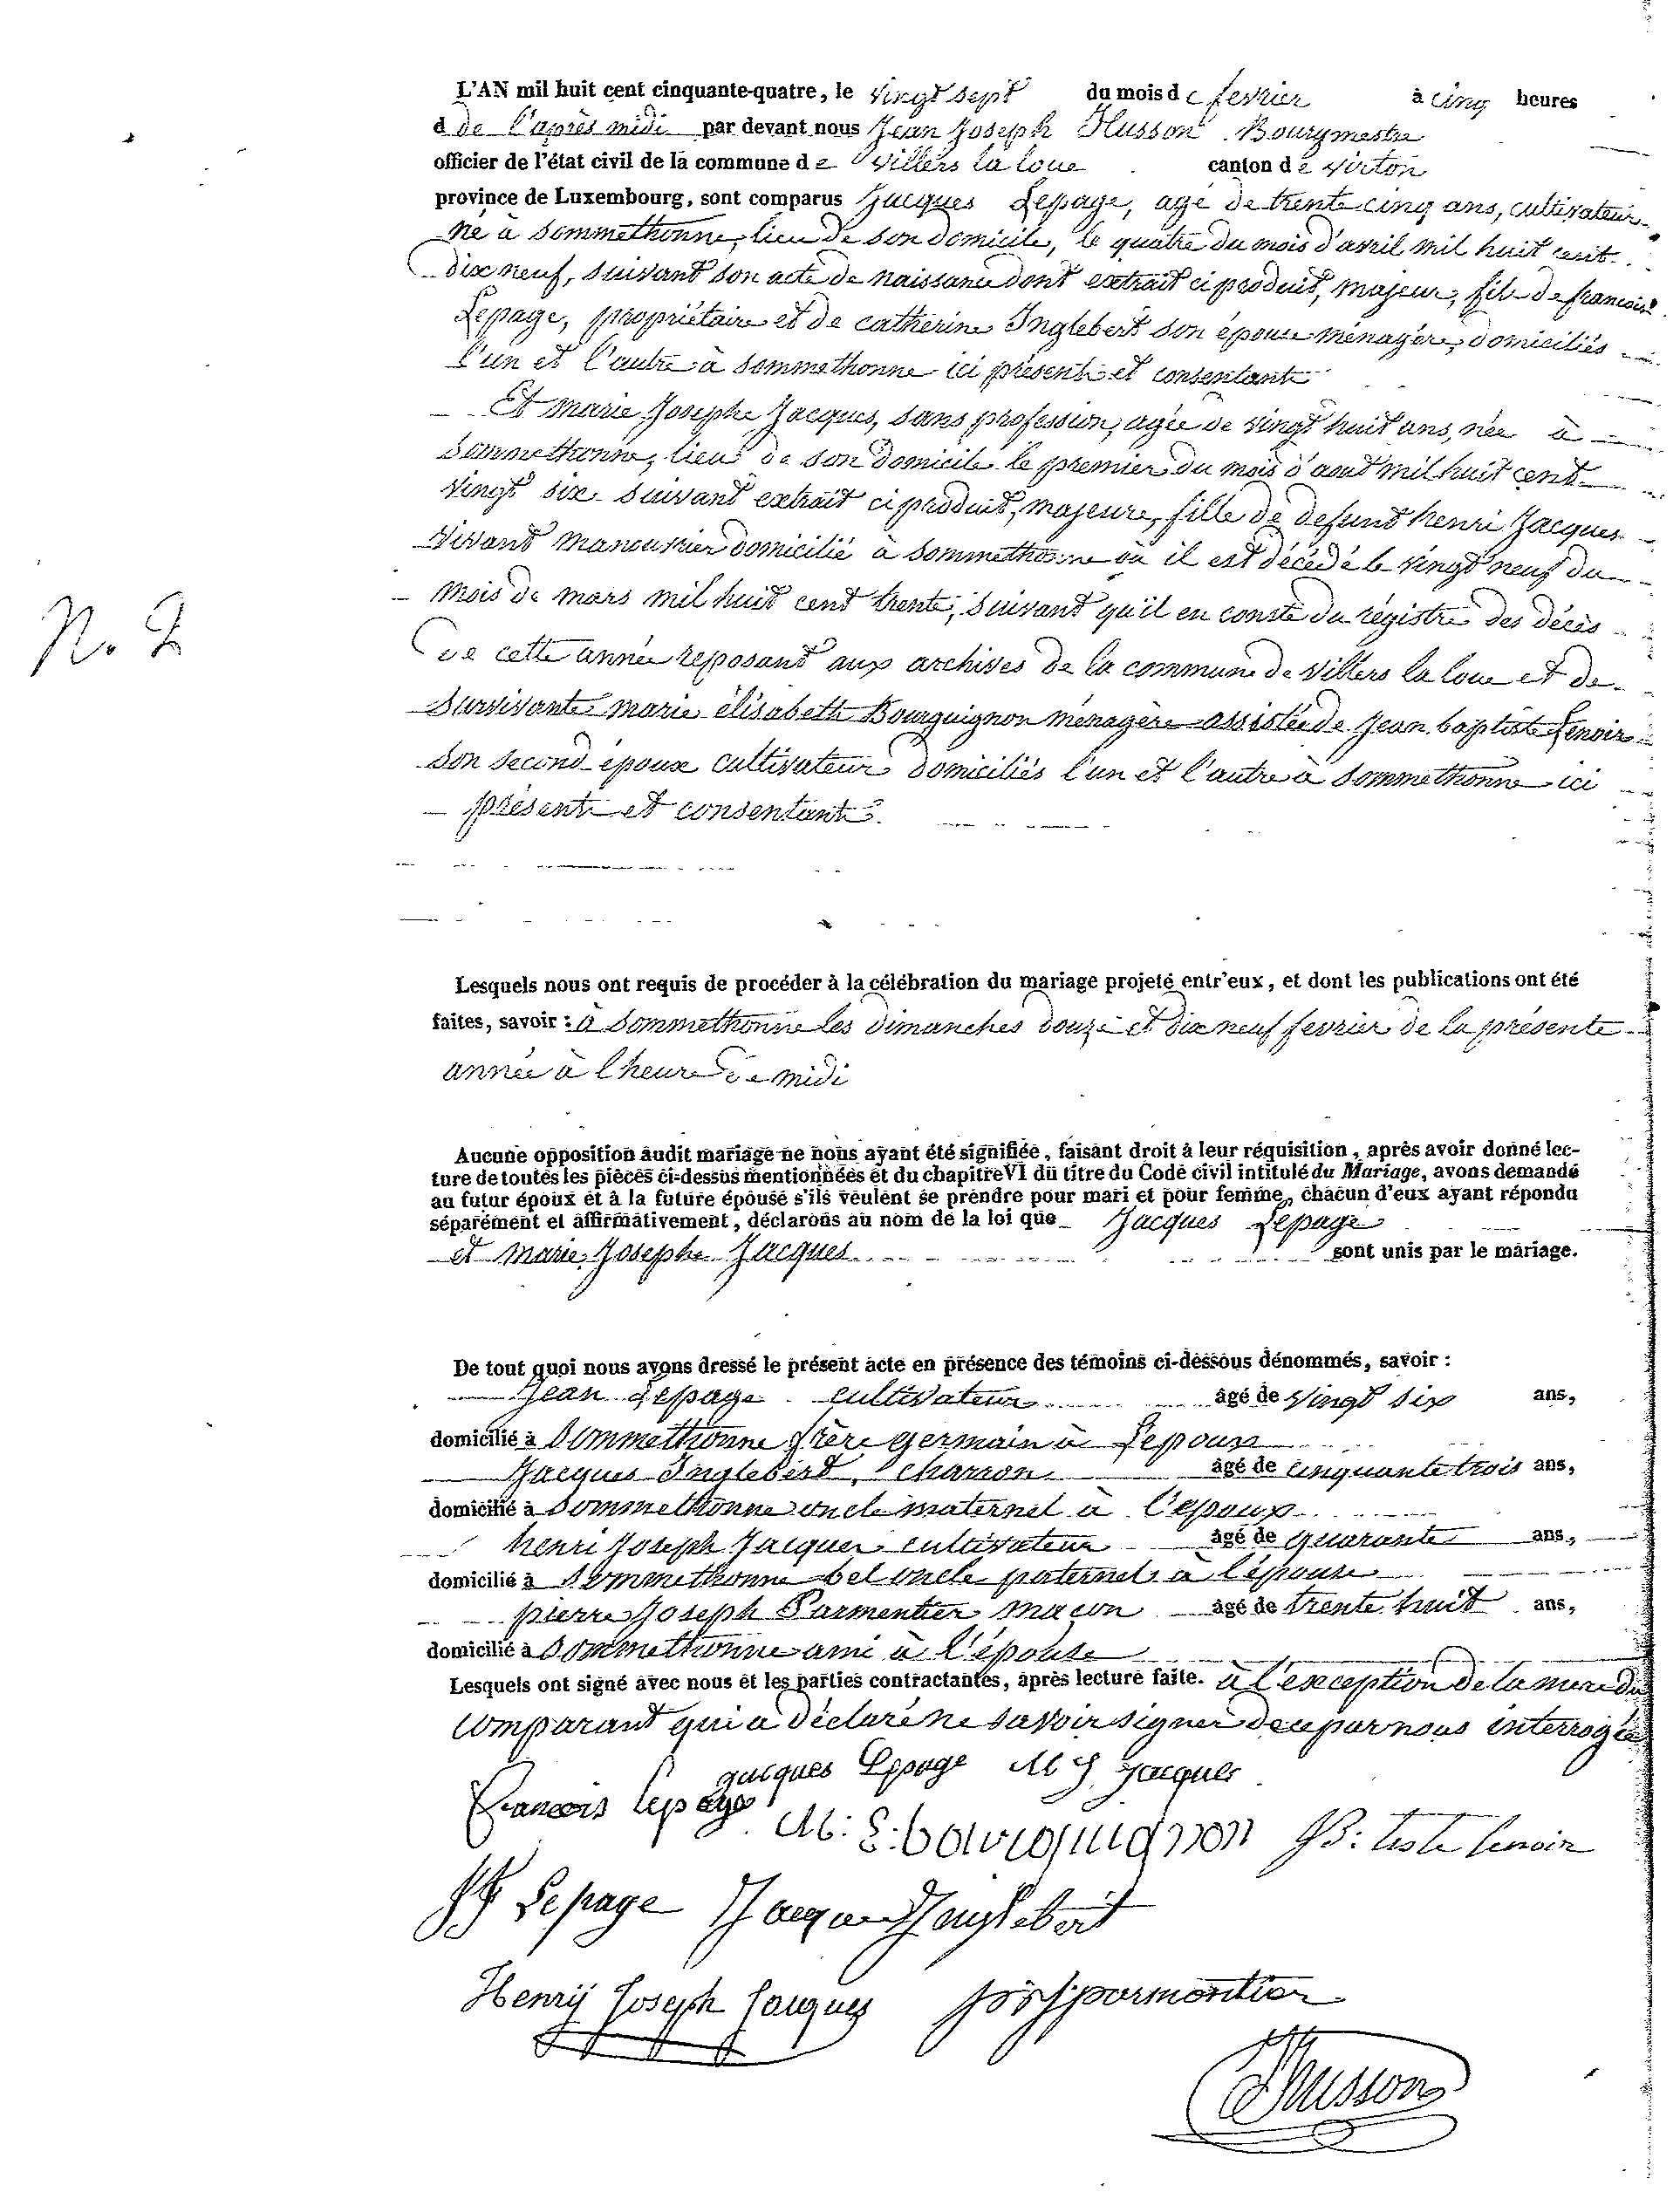 L'AN mil huit cent cinquante-quatre, le vingt sept du mois de fevrier à cinq heures
d de l'après midi par devant nous Jean Joseph Husson Bourgmestre
officier de l'état civil de la commune de Villers la loue canton de Virton
province de Luxembourg, sont comparus Jacques Lepage, agé de trente cinq ans, cultivateur
né à Sommethonne, lieu de son domicile, le quatre du mois d'avril mil huit cent
dix neuf, suivant son acte de naissance dont extrait ci produit, majeur, fils de francois
Lepage, propriétaire et de catherine Inglebert son épouse ménagère, domiciliés
l'un et l'autre à Sommethonne ici présents et consentants
Et marie Josephe Jacques, sans profession, agée de vingt huit ans, née à
Sommethonne, lieu de son domicile le premier du mois d'aout mil huit cent
vingt six suivant extrait ci produit, majeure, fille de defunt henri Jacques
vivant manouvrier domicilié à Sommethonne où il est décédé le vingt neuf du
mois de mars mil huit cent trente, suivant qu'il en conste du régistre des décès
N. 2
de cette année reposant aux archives de la commune de Villers la loue et de
survivante marie élisabeth Bourguignon ménagère assistée de Jean baptiste Lenoir
son second époux cultivateur domiciliés l'un et l'autre à Sommethonne ici
présents et consentants.
Lesquels nous ont requis de procéder à la célébration du mariage projeté entr'eux, et dont les publications ont été
faites, savoir : à Sommethonne les dimanches douze et dix neuf fevrier de la présente
année à l'heure de midi
Aucune opposition audit mariage ne nous ayant été signifiée, faisant droit à leur réquisition, après avoir donné lec-
ture de toutes les pièces ci-dessus mentionnées et du chapitre VI du titre du Code civil intitulé du Mariage, avons demandé
au futur époux et à la future épouse s'ils veulent se prendre pour mari et pour femme, chacun d'eux ayant répondu
séparément et affirmativement, déclarons au nom de la loi que Jacques Lepage
et marie Josephe Jacques sont unis par le mariage.
De tout quoi nous avons dressé le présent acte en présence des témoins ci-dessous dénommés, savoir :
Jean Lepage cultivateur âgé de vingt six ans,
domicilié à Sommethonne frère germain à L'epoux
Jacques Inglebert, charron âgé de cinquante trois ans,
domicilié à Sommethonne oncle maternel à l'epoux
henri Joseph Jacques cultivateur âgé de quarante ans,
domicilié à Sommethonne bel oncle paternel à l'épouse
pierre Joseph Parmentier maçon âgé de trente huit ans,
domicilié à Sommethonne ami à l'épouse
Lesquels ont signé avec nous et les parties contractantes, après lecture faite. à l'exception de la mere du
comparant qui a déclaré ne savoir signer de ce par nous interrogée
jacques Lepage M J jacques
francois lepage M: E: bourguignon JB: tiste lenoir
JJ Lepage Jacques Inglebert
Henrij Joseph Jacques parmentier
Husson